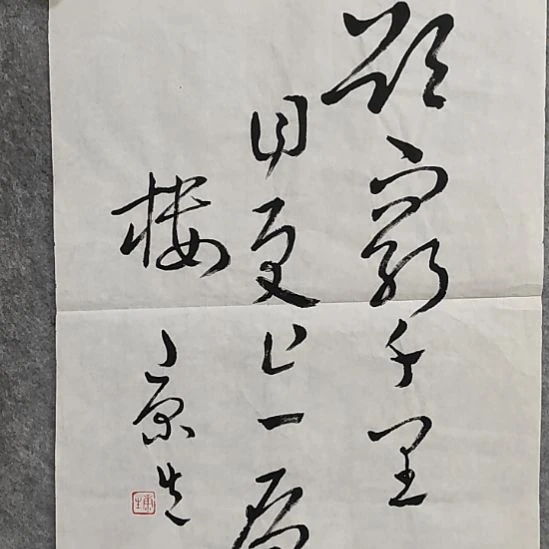 欲穷千里
目更上一层
楼